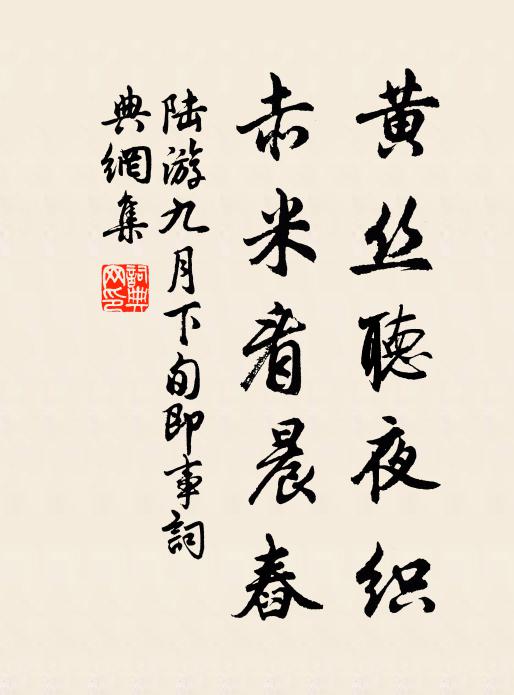 黄丝聽夜织
赤米看晨舂
陆游九月下旬即事詞
典網集
詞典网印